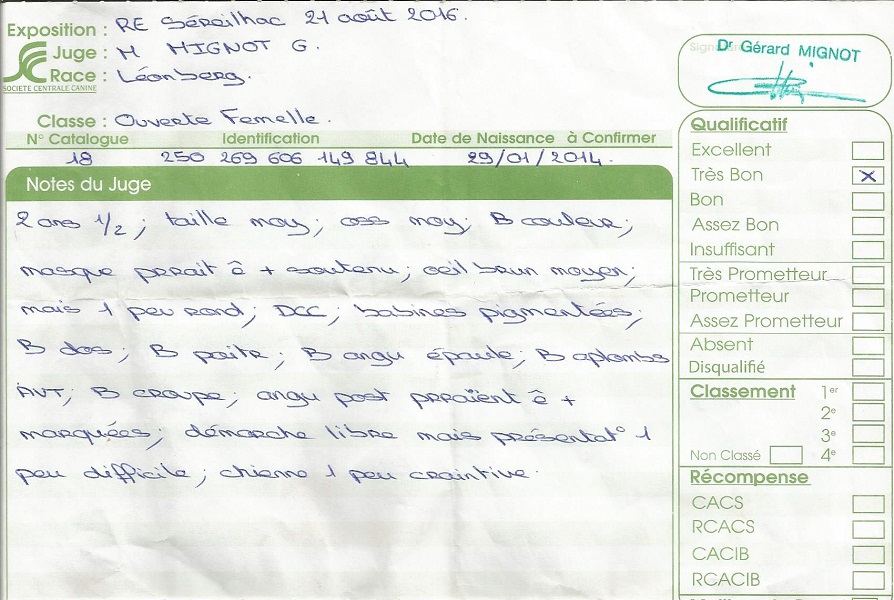 Exposition : RE Séreilhac 21 août 2016.
Juge : M MIGNOT G.
Race : Léonberg.
SOCIETE CENTRALE CANINE
Classe : Ouverte Femelle.
N° Catalogue Identification Date de Naissance à Confirmer
18 250 269 606 149 844 29/01/2014.
Notes du Juge
2 ans 1/2 ; taille moy ; oss moy ; B couleur ;
masque prrait ê + soutenu ; oeil brun moyen ;
mais 1 peu rond ; DCC ; babines pigmentées ;
B dos ; B poitr ; B angu épaule ; B aplombs
AVT ; B croupe ; angu post prraient ê +
marquées ; démarche libre mais présentat° 1
peu difficile ; chienne 1 peu craintive.
Dr Gérard MIGNOT
Qualificatif
Excellent
Très Bon X
Bon
Assez Bon
Insuffisant
Très Prometteur
Prometteur
Assez Prometteur
Absent
Disqualifié
Classement 1er
2e
3e
Non Classé 4e
Récompense
CACS
RCACS
CACIB
RCACIB